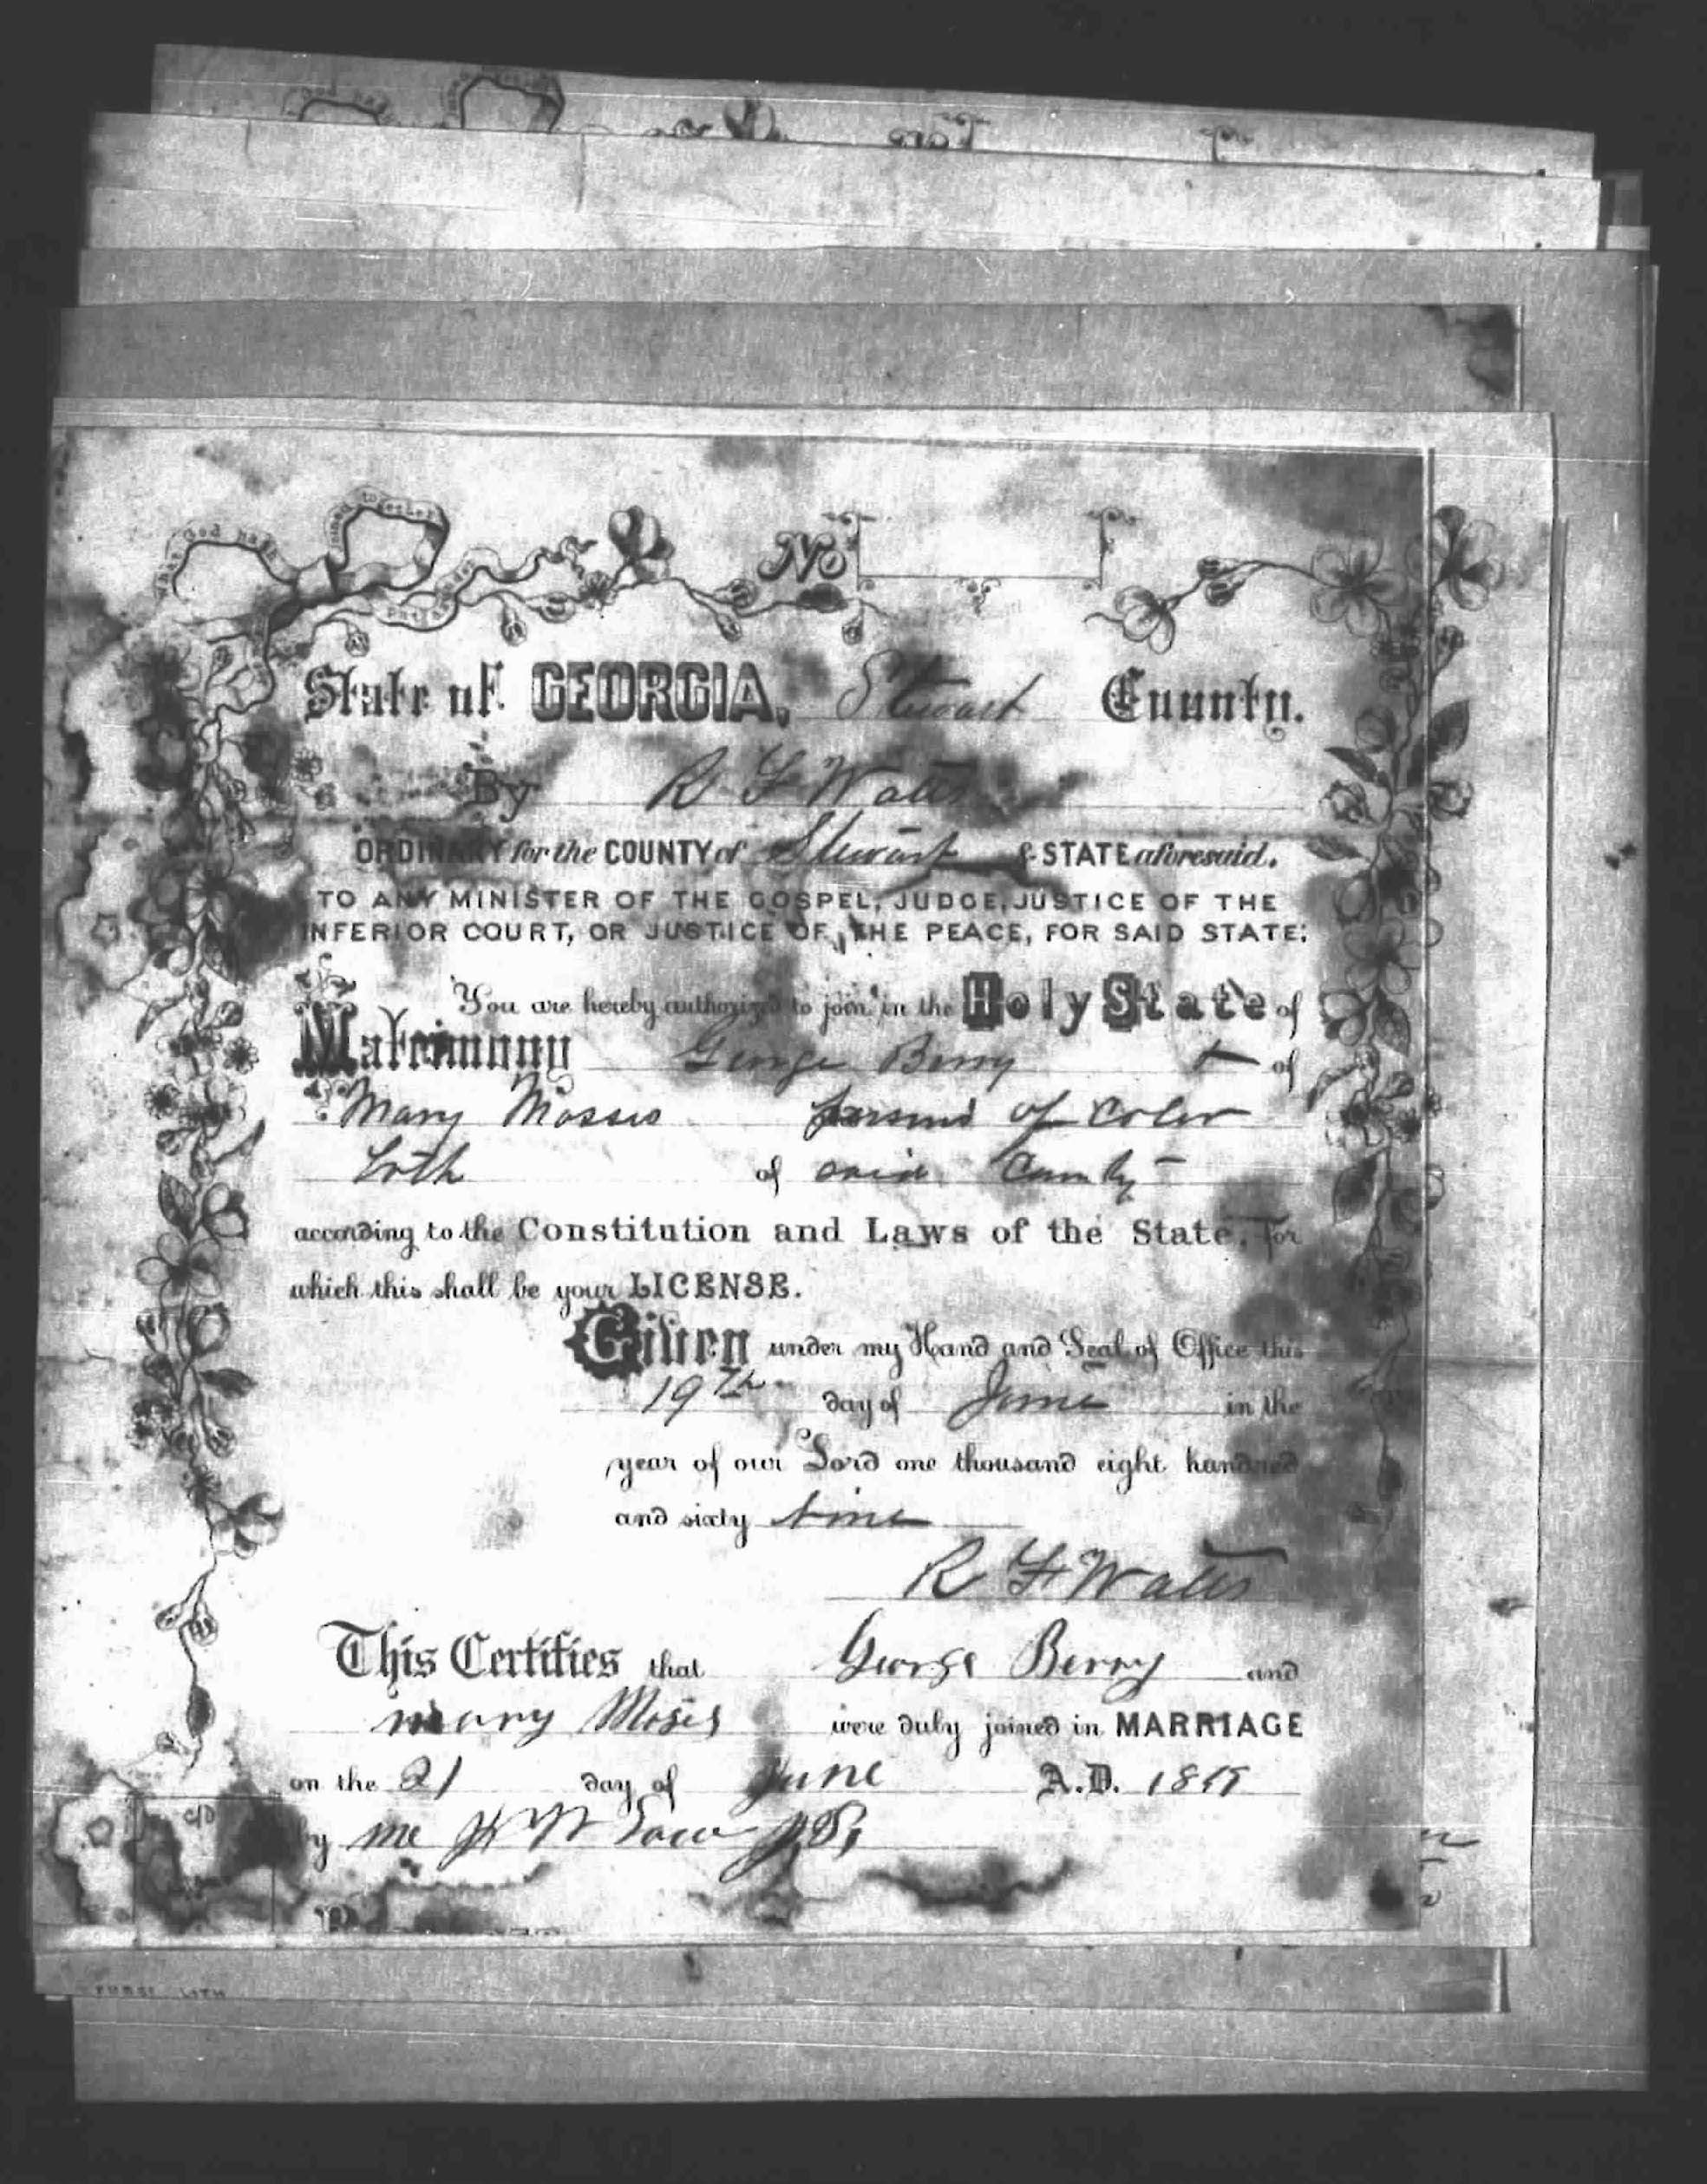 What God hath joined together
No
State of GEORGIA, Stewart County.
By R F Watts
ORDINARY for the COUNTY of Stewart & STATE aforesaid.
TO ANY MINISTER OF THE GOSPEL, JUDGE, JUSTICE OF THE
INFERIOR COURT, OR JUSTICE OF THE PEACE, FOR SAID STATE:
You are hereby authorized to join in the Holy State of
Matrimony George Berry + of
Mary Mosses persons of Color
both of said County
according to the Constitution and Laws of the State, For
which this shall be your LICENSE.
Given under my Hand and Seal of Office this
19th day of June in the
year of our Lord one thousand eight hundred
and sixty Nine
R F Watts
This Certifies that George Berry and
mary Moses were duly joined in MARRIAGE
on the 21 day of June A.D. 18
by me